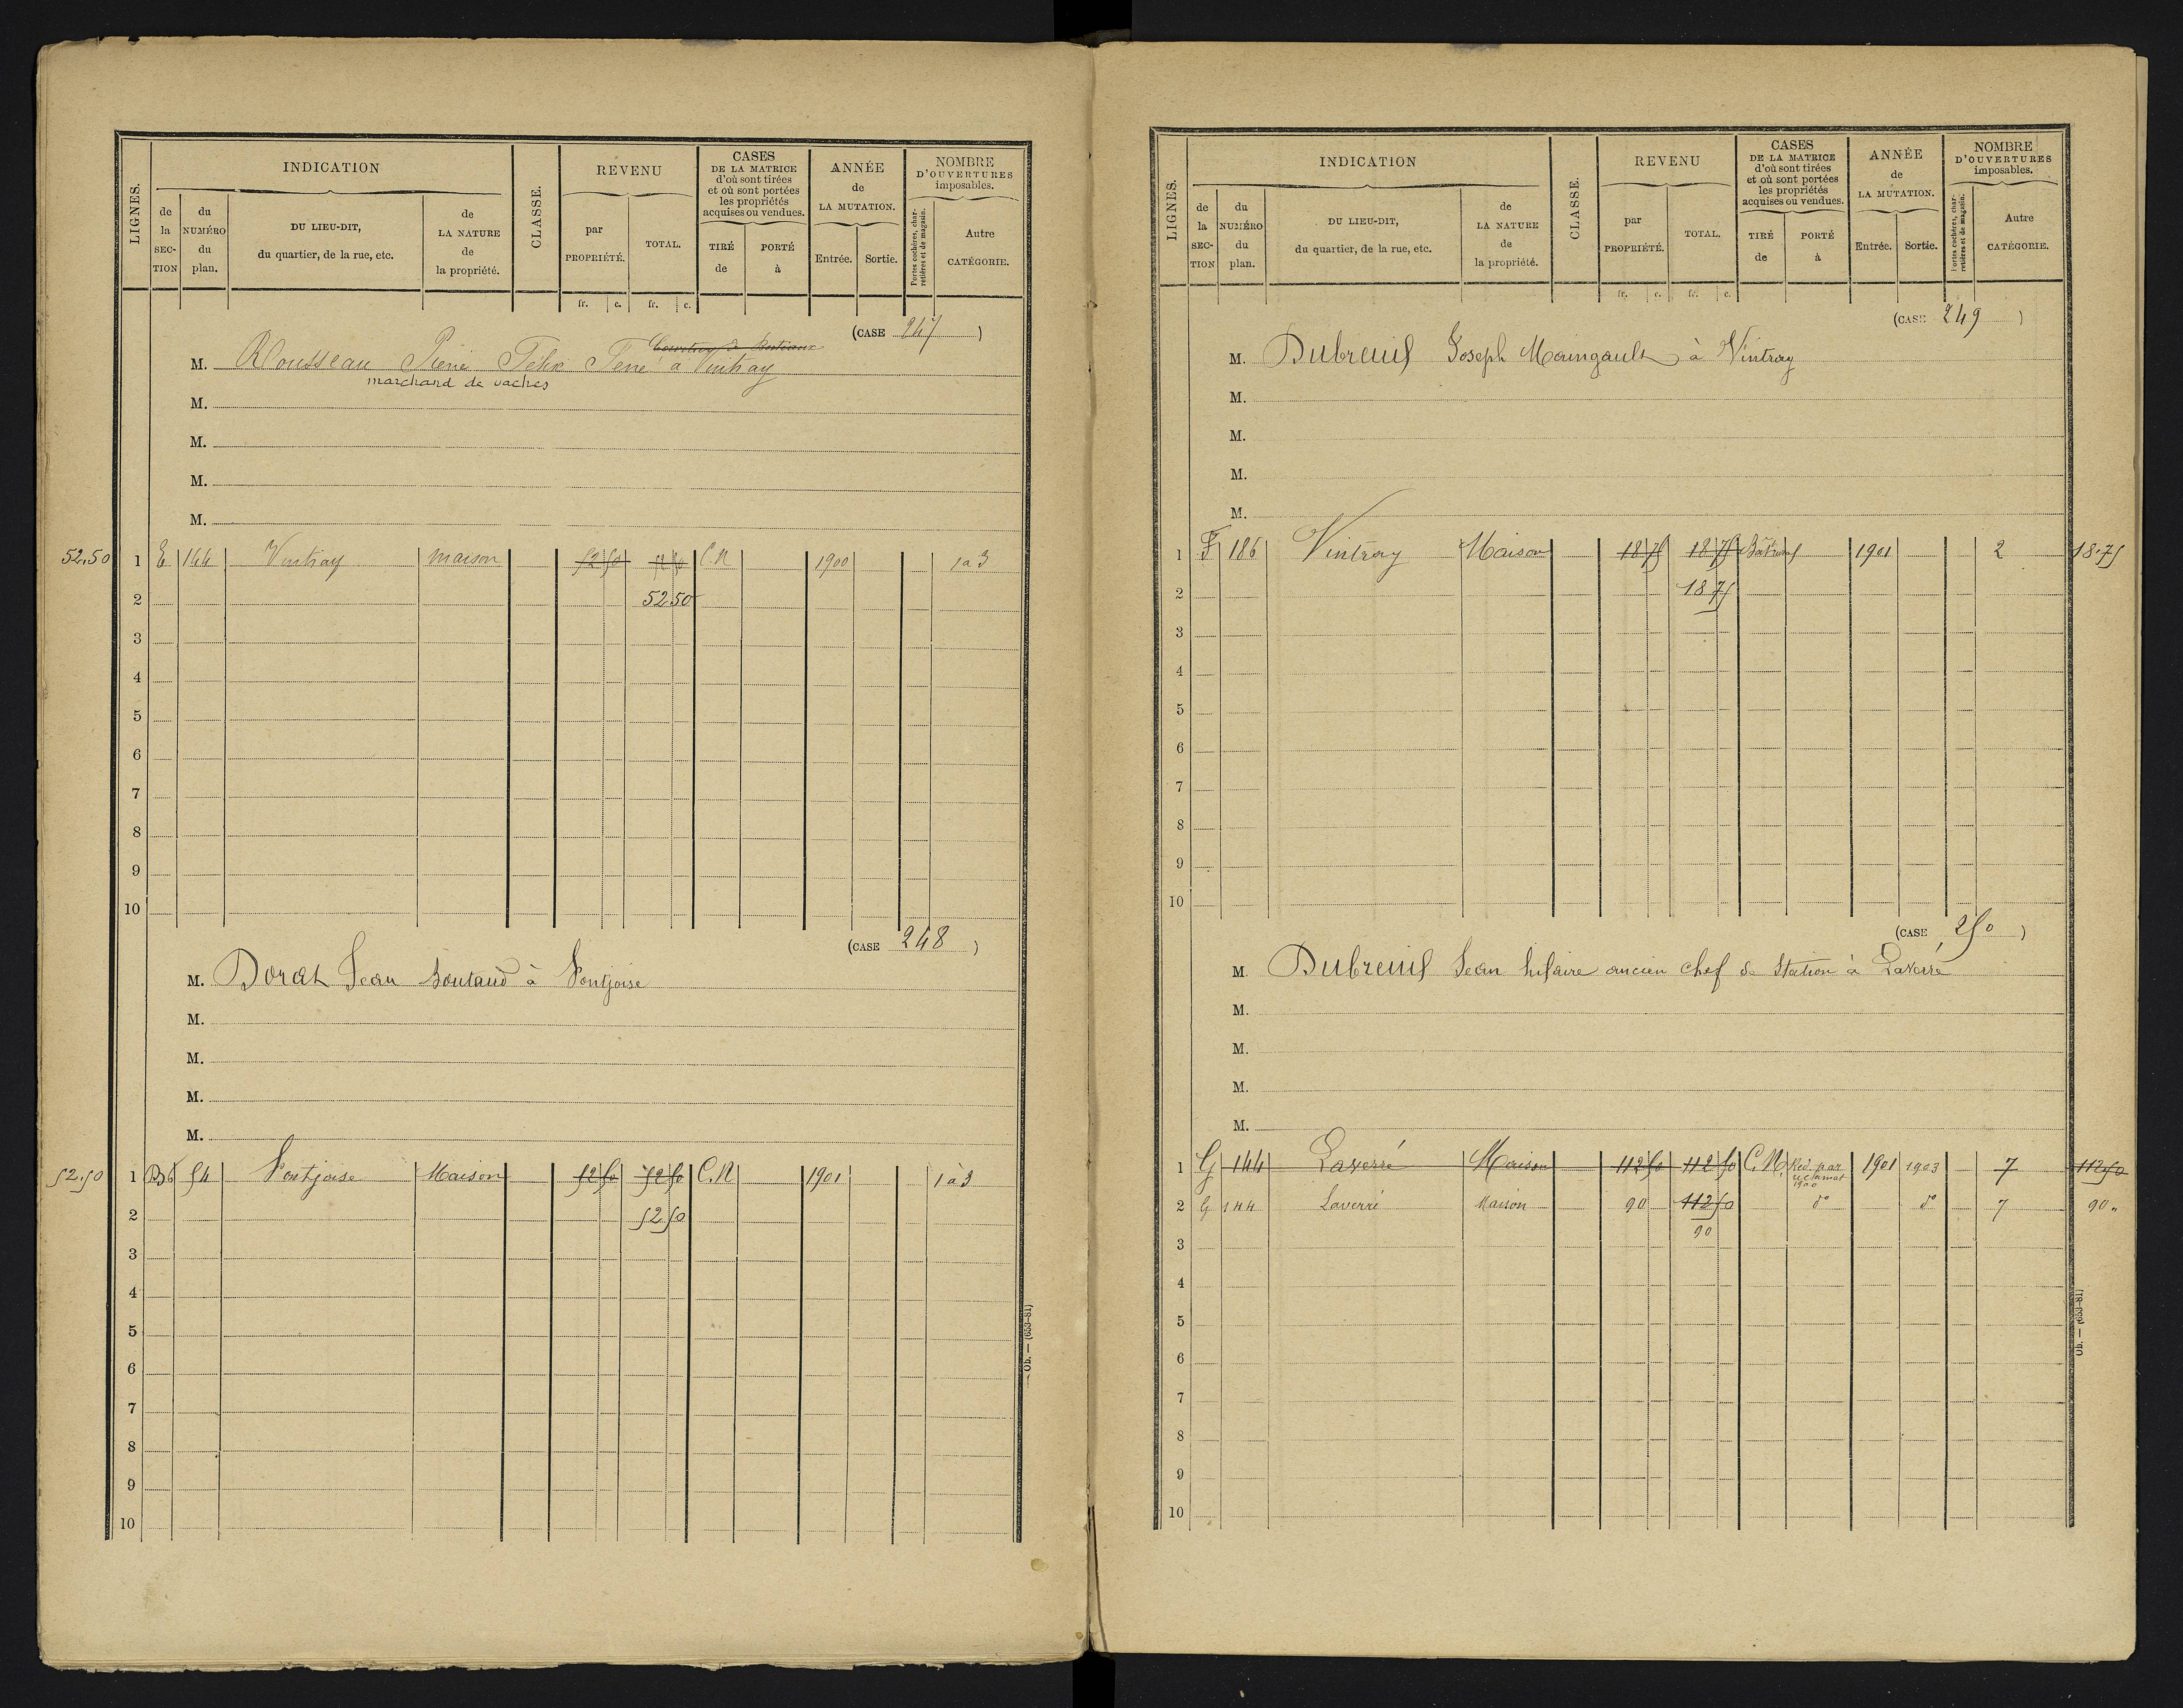 LIGNES.
INDICATION
de la SECTION
du NUMÉRO du plan.
DU LIEU-DIT, du quartier, de la rue, etc.
de LA NATURE de la propriété.
CLASSE.
REVENU
par PROPRIÉTÉ.
TOTAL.
CASES DE LA MATRICE d'où sont tirées et où sont portées les propriétés acquises ou vendues.
TIRÉ de
PORTÉ à
ANNÉE de LA MUTATION.
Entrée.
Sortie.
NOMBRE D'OUVERTURES imposables.
Portes cochères, charretières et de magasin.
Autre CATÉGORIE.
fr. c. fr. c.
(CASE 247)
M. Rousseau Pierre Félix à Vintray
marchand de vaches
M.
M.
M.
M.
52.50 1 E 144 Vintray maison 52 50 52 50 C.N 1900 1 à 3
2 52 50
3
4
5
6
7
8
9
10
(CASE 248)
M. Dorat Jean Boutaud à Pontjoise
M.
M.
M.
M.
52.50 1 B6 54 Pontjoise Maison 52 50 52 50 C.N 1901 1 à 3
2 52 50
3
4
5
6
7
8
9
10
Ob. — (653-81)
LIGNES.
INDICATION
de la SECTION
du NUMÉRO du plan.
DU LIEU-DIT, du quartier, de la rue, etc.
de LA NATURE de la propriété.
CLASSE.
REVENU
par PROPRIÉTÉ.
TOTAL.
CASES DE LA MATRICE d'où sont tirées et où sont portées les propriétés acquises ou vendues.
TIRÉ de
PORTÉ à
ANNÉE de LA MUTATION.
Entrée.
Sortie.
NOMBRE D'OUVERTURES imposables.
Portes cochères, charretières et de magasin.
Autre CATÉGORIE.
fr. c. fr. c.
(CASE 249)
M. Dubreuil Joseph Maingault à Vintray
M.
M.
M.
M.
1 F 186 Vintray Maison 18 75 18 75 1901 2 18.75
2 18 75
3
4
5
6
7
8
9
10
(CASE 250)
M. Dubreuil Jean hilaire ancien chef de Station à Laverré
M.
M.
M.
M.
1 G 144 Laverré Maison 112 50 112 50 C.N Réd. par réclamat 1900 1901 1903 7 112 50
2 G 144 Laverré Maison 90 112 50 do do 7 90 "
90
3
4
5
6
7
8
9
10
Ob. — (653-81)